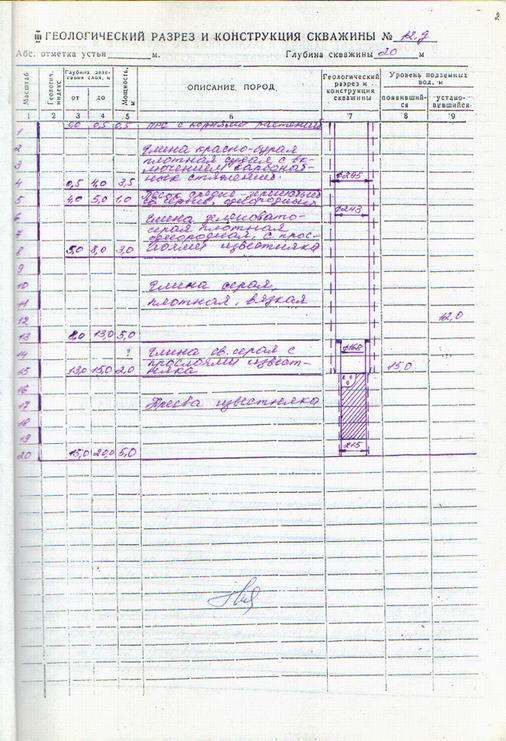 2
III ГЕОЛОГИЧЕСКИЙ РАЗРЕЗ И КОНСТРУКЦИЯ СКВАЖИНЫ №
Абс. отметка устья м. Глубина скважины 20 м
Масштаб
Геологич. индекс
Глубина залегания слоя, м
от
до
Мощность, м
ОПИСАНИЕ ПОРОД
Геологический разрез и конструкция скважины
Уровень подземных вод, м
появивший-
ся
устано-
вившийся
1 2 3 4 5 6 7 8 9
1 0,0 0,5 0,5 ПРС с корнями растений
2 Глина красно-бурая
плотная сухая с вк-
3 лючением карбонат-
4 0,5 4,0 3,5 ных стяжений. ø295
5 4,0 5,0 1,0 Песок средне-зернистый
однородный
6 Глина зеленовато- ø243
7 серая плотная
однородная, с прос-
8 5,0 8,0 3,0 лоями известняка
9
10 Глина серая,
11 плотная, вязкая
12 12,0
13 8,0 13,0 5,0
14 Глина св. серая с ø168
прослоями извест-
15 13,0 15,0 2,0 няка 15,0
16
17 Дресва известняка
18
19
20 15,0 20,0 5,0 215